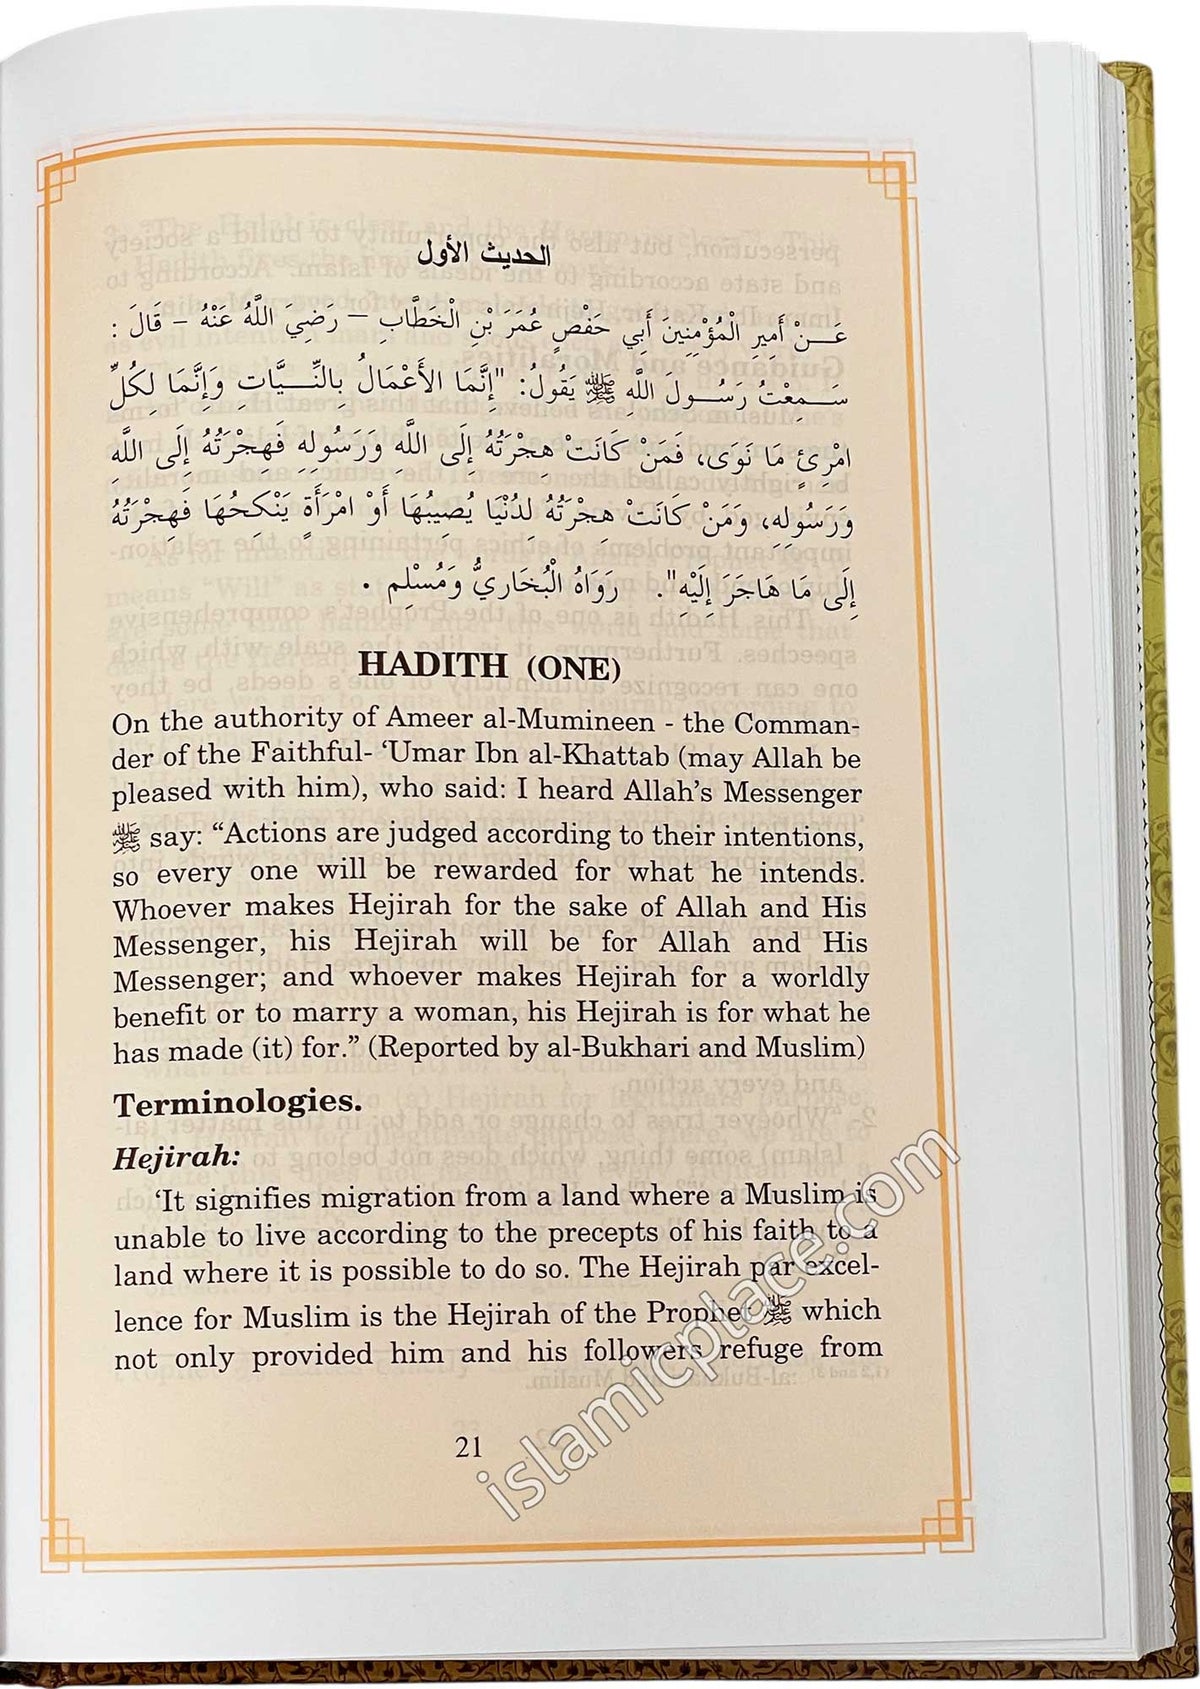 الحديث الأول
عَـنْ أَمِيرِ الْمُؤْمِنِينَ أَبِي حَفْصٍ عُمَرَ بْنِ الْخَطَّابِ – رَضِيَ اللَّهُ عَنْهُ – قَالَ :
سَـمِعْتُ رَسُـولَ اللَّهِ ﷺ يَقُولُ: "إِنَّمَا الأَعْمَالُ بِالنِّـيَّاتِ وَإِنَّمَا لِكُلِّ
امْرِئٍ مَا نَوَى، فَمَنْ كَانَتْ هِجْرَتُهُ إِلَى اللَّهِ وَرَسُولِهِ فَهِجْرَتُهُ إِلَى اللَّهِ
وَرَسُولِهِ، وَمَنْ كَانَتْ هِجْرَتُهُ لِدُنْيَا يُصِيبُهَا أَوْ امْرَأَةٍ يَنْكِحُهَا فَهِجْرَتُهُ
إِلَى مَا هَاجَرَ إِلَيْهِ". رَوَاهُ الْبُخَارِيُّ وَمُسْلِم .
HADITH (ONE)
On the authority of Ameer al-Mumineen - the Comman-
der of the Faithful- ‘Umar Ibn al-Khattab (may Allah be
pleased with him), who said: I heard Allah’s Messenger
ﷺ say: “Actions are judged according to their intentions,
so every one will be rewarded for what he intends.
Whoever makes Hejirah for the sake of Allah and His
Messenger, his Hejirah will be for Allah and His
Messenger; and whoever makes Hejirah for a worldly
benefit or to marry a woman, his Hejirah is for what he
has made (it) for.” (Reported by al-Bukhari and Muslim)
Terminologies.
Hejirah:
‘It signifies migration from a land where a Muslim is
unable to live according to the precepts of his faith to a
land where it is possible to do so. The Hejirah par excel-
lence for Muslim is the Hejirah of the Prophet ﷺ which
not only provided him and his followers refuge from
21
islamicplace.com